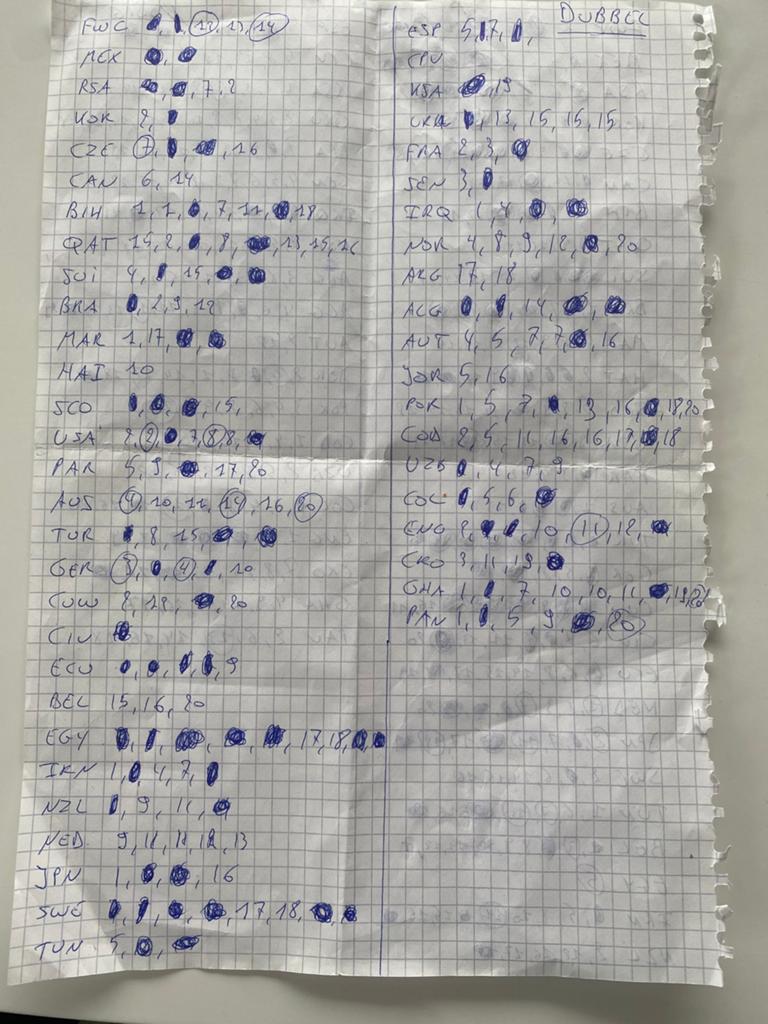 DUBBEL
FWC 12, 13, 14
MEX
RSA 7, 2
KOR 2,
CZE 7, 16
CAN 6, 14
BIH 1, 1, 7, 11, 18
QAT 15, 2, 8, 13, 15, 16
SUI 4, 15,
BRA 2, 9, 12
MAR 1, 17,
HAI 10
SCO 15,
USA 2, 2, 7, 8, 8,
PAR 5, 9, 17, 20
AUS 4, 10, 11, 14, 16, 20
TUR 8, 15,
GER 3, 4, 10
CUW 2, 12, 20
CIV
ECU 9
BEL 15, 16, 20
EGY 17, 18,
IRN 1, 4, 7,
NZL 9, 11,
NED 9, 11, 11, 12, 13
JPN 1, 16
SWE 17, 18,
TUN 5,
ESP 5, 17,
CPV
KSA 19
URU 13, 15, 15, 15
FRA 2, 3,
SEN 3,
IRQ 1, 4,
NOR 4, 8, 9, 12, 20
ARG 17, 18
ALG 14,
AUT 4, 5, 7, 7, 16
JOR 5, 16
POR 1, 5, 7, 13, 16, 18, 20
COD 2, 5, 11, 16, 16, 17, 18
UZB 4, 7, 9
COL 5, 6,
ENG 2, 10, 11, 12,
CRO 3, 11, 19,
GHA 1, 7, 10, 10, 11, 19, 20
PAN 1, 5, 9, 20